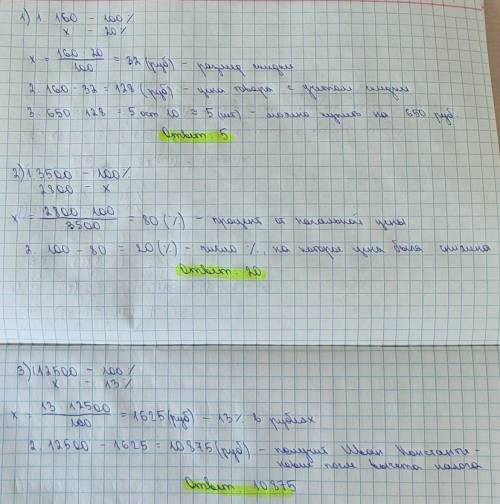 1) 1. 160 – 100%
x – 20%
x = 160 · 20 / 100 = 32 (руб) – размер скидки
2. 160 - 32 = 128 (руб) – цена товара с учётом скидки
3. 650 : 128 = 5 ост 10 ≈ 5 (шт) – можно купить на 650 руб
Ответ. 5
2) 1 3500 – 100%
2800 – x
x = 2800 · 100 / 3500 = 80 (%) – процент от начальной цены
2. 100 - 80 = 20 (%) – число %, на которое цена была снижена
Ответ. 20
3) 1 12500 – 100%
x – 13%
x = 13 · 12500 / 100 = 1625 (руб) – 13% в рублях
2. 12500 - 1625 = 10875 (руб) – получит Иван Константи-
нович после вычета налога
Ответ. 10875